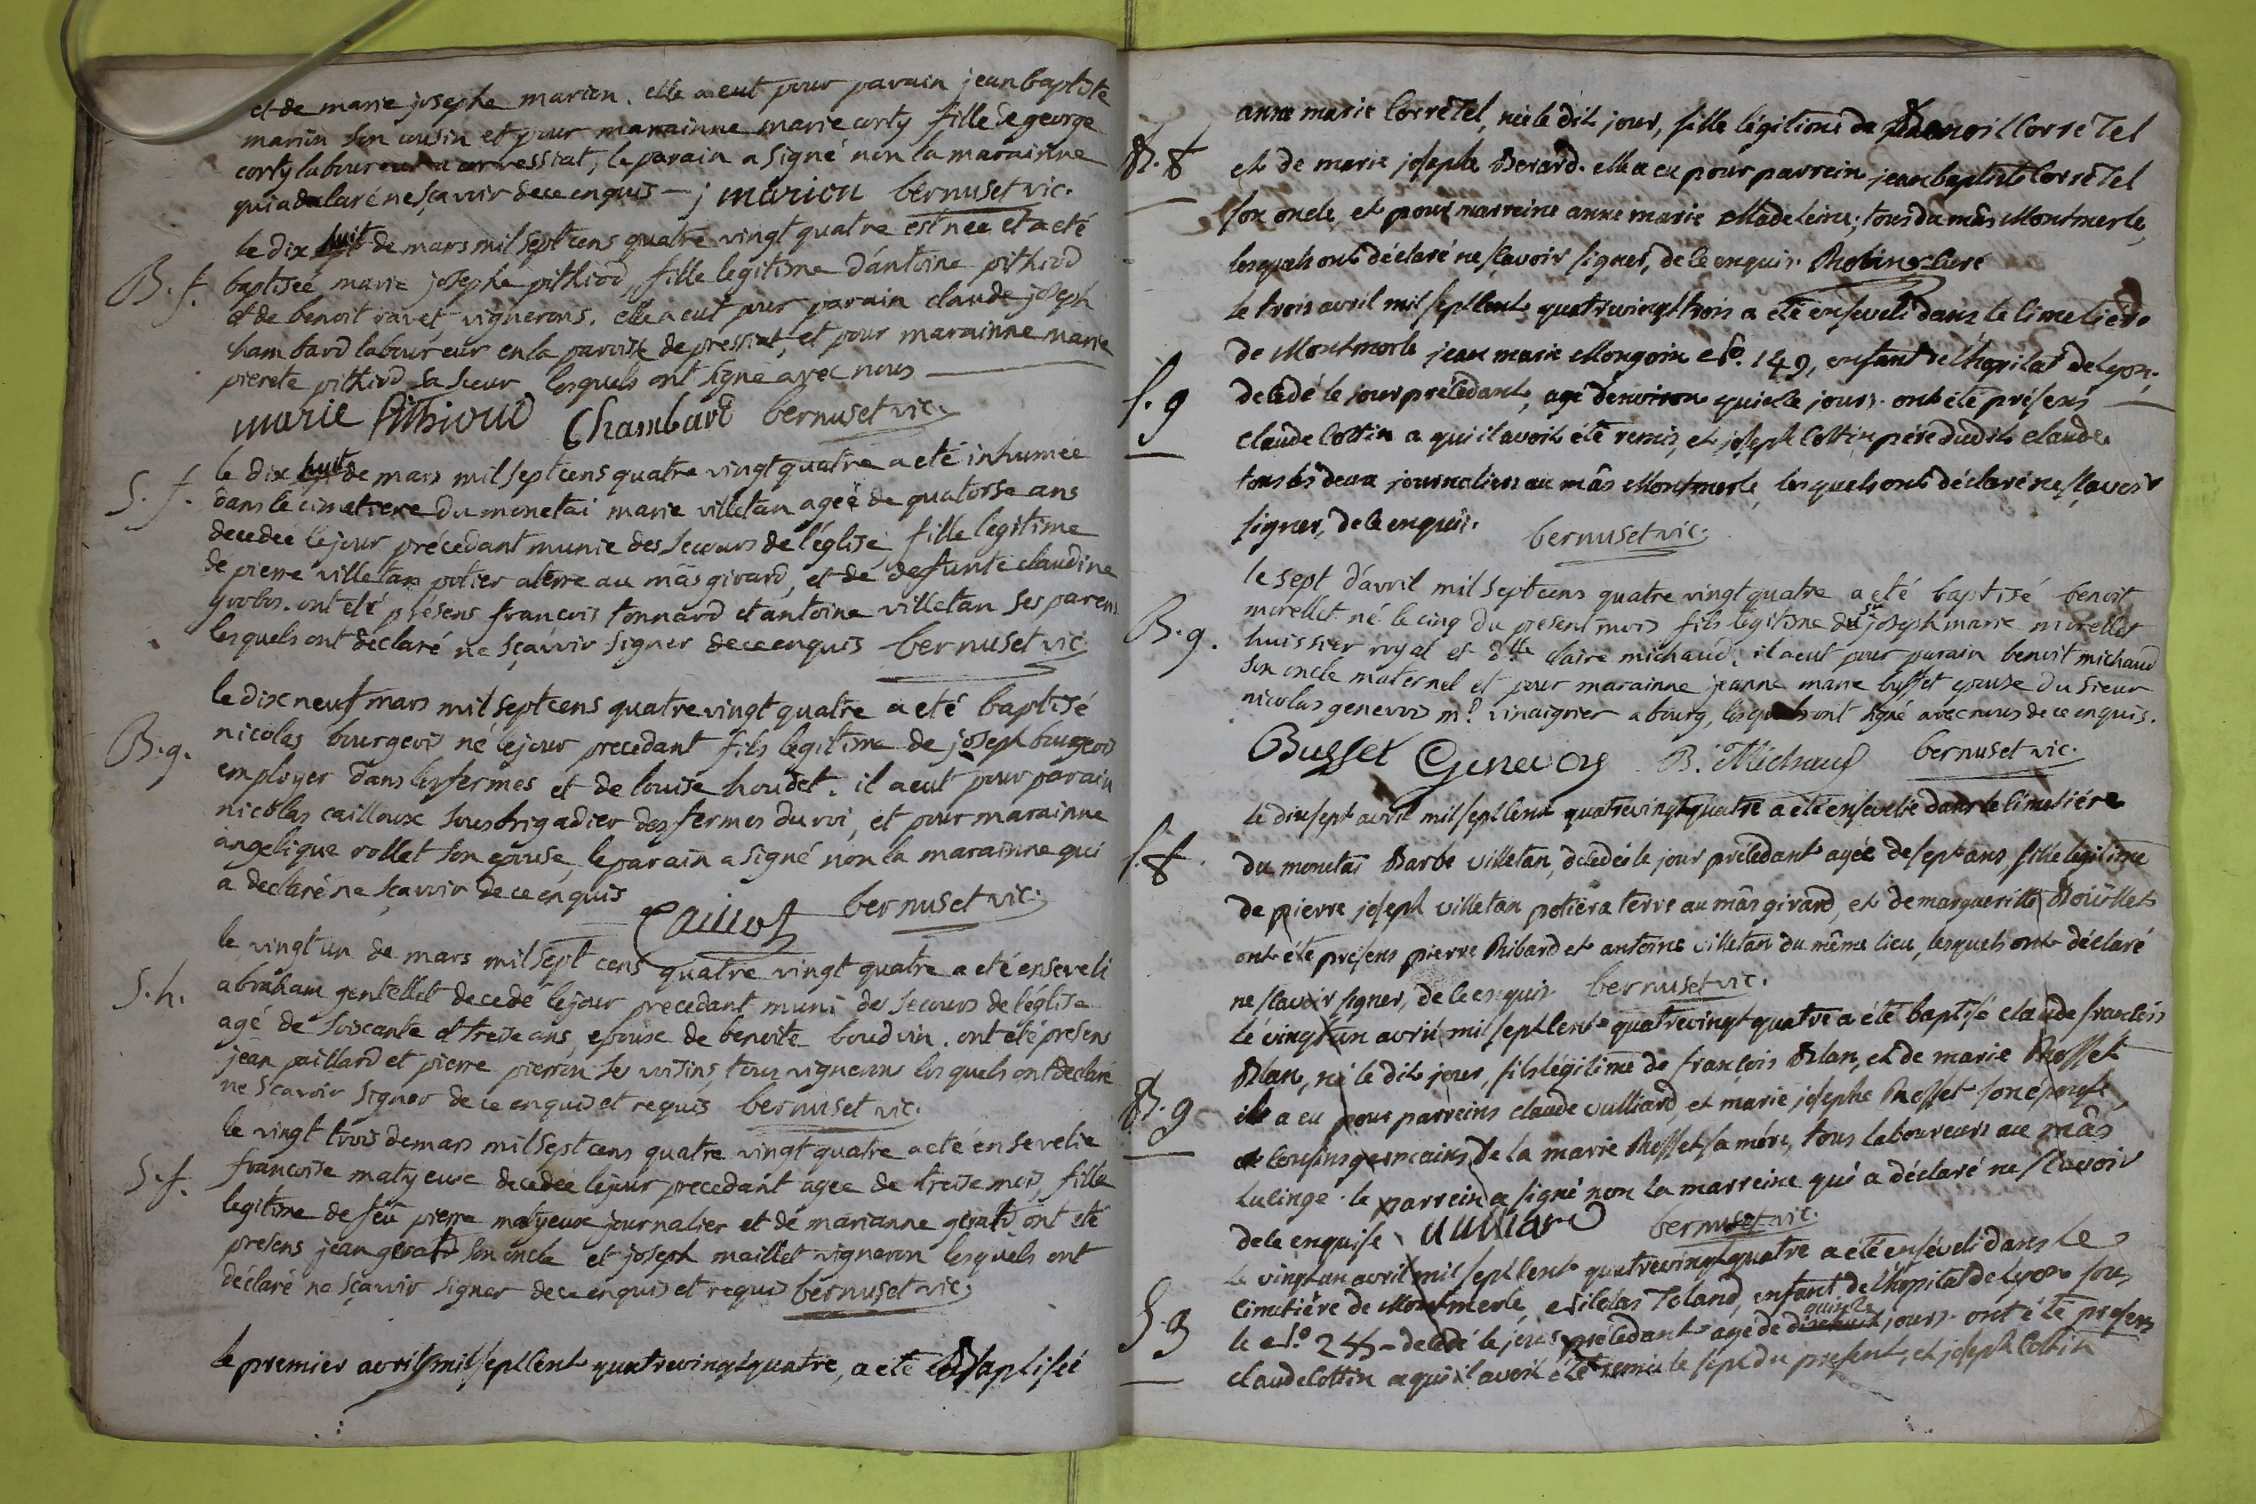 et de marie josephe marion. elle a eut pour parain jean baptiste
marion son cousin et pour marainne marie corty fille de george
corty laboureur a corressiat, le parain a signé non la marainne
qui a declaré ne sçavoir de ce enquis — j marion bernuset vic.
le dix huit de mars mil sept cens quatre vingt quatre est née et a eté
B. f. baptisée marie josephe pithiod, fille legitime d'antoine pithiod
et de benoit ravet, vignerons. elle a eut pour parain claude joseph
chambard laboureur en la paroisse de pressiat, et pour marainne marie
pierete pithiod sa sœur lesquels ont signe avec nous
marie pithioud Chambard bernuset vic.
le dix huit de mars mil sept cens quatre vingt quatre a eté inhumée
S. f. dans le cimetiere du monetai marie villetan agée de quatorse ans
decedée le jour précedant munie des secours de l'église fille legitime
de pierre villetan potier a terre au mâs girard, et de defunte claudine
grobos. ont eté présens francois tonnard et antoine villetan ses parens
lesquels ont déclaré ne sçavoir signer de ce enquis bernuset vic
le dix neuf mars mil sept cens quatre vingt quatre a eté baptisé
B. g. nicolas bourgeois né le jour precedant fils legitime de joseph bourgeois
employer dans les fermes et de louise houdet. il a eut pour parain
nicolas cailloux sous brigadier des fermes du roi, et pour marainne
angelique rollet son epouse, le parain a signé non la marainne qui
a declaré ne sçavoir de ce enquis
bernuset vic.
le vingt un de mars mil sept cens quatre vingt quatre a eté enseveli
S. h. abraham gentellet decedé le jour precedant muni des secours de l'église
agé de soixante et treise ans, epoux de benoite boudvin. ont été presens
jean paillard et pierre pierron ses voisins, tous vignerons lesquels ont declaré
ne sçavoir signer de ce enquis et requis bernuset vic.
le vingt trois de mars mil sept cens quatre vingt quatre a eté ensevelie
S. f. francoise matyeux decedée le jour precedant agée de treise mois, fille
legitime de feu pierre matyeux journalier et de marianne gerard, ont eté
presens jean gerard son oncle et joseph maillet vigneron lesquels ont
déclaré ne sçavoir signer de ce enquis et requis bernuset vic.
le premier avril mil sept cent quatre vingt quatre, a été baptisée
anne marie Corretel, née le dit jour, fille légitime de Benoit Corretel
B. f et de marie joseph Berard. elle a eu pour parrein jean baptiste Corretel
son oncle, et pour marreine anne marie Madeleine; tous du mâs Montmerle,
lesquels ont déclaré ne sçavoir signer, de ce enquis. Robin, curé
le trois avril mil sept cent quatre vingt trois a été enseveli dans le cimetière
de Montmerle jean marie Mongoin No. 149, enfant de l'hopital de Lyon,
S. g decedé le jour précedant, agé d'environ quinze jours. ont été présens
claude Cottin a qui il avoit été remis, et joseph Cottin père du dit claude.
tous les deux journaliers au mâs Montmerle, lesquels ont déclaré ne sçavoir
signer, de ce enquis. bernuset vic.
le sept d'avril mil sept cens quatre vingt quatre a eté baptisé benoit
B. g. morellet né le cinq du present mois fils légitime du sr joseph marie morellet
huissier royal et dlle claire michaud, il a eut pour parain benoit michaud
son oncle maternel et pour marainne jeanne marie busset epouse du sieur
nicolas genevois md vinaigrier a bourg, lesquels ont signé avec nous de ce enquis.
Busset Genevoy B. Michaud bernuset vic.
Le dix sept avril mil sept cent quatre vingt quatre a été ensevelie dans le cimetière
S. f. du monetai Barbe villetan, décedée le jour précedant agée de sept ans, fille légitime
de pierre joseph villetan potier a terre au mâs girard, et de marguerite Bouillet
ont été présens pierre Ribard et antoine villetan du même lieu, lesquels ont déclaré
ne sçavoir signer, de ce enquis bernuset vic.
Le vingt un avril mil sept cent quatre vingt quatre a été baptisé claude françois
Blan, né le dit jour, fils légitime de françois Blan, et de marie Rosset
B. g il a eu pour parreins claude vulliard, et marie josephe Rosset son épouse,
cousins germains de la marie Rosset sa mére, tous laboureurs au mâs
Lucinge. le parrein a signé non la marreine qui a déclaré ne sçavoir
de ce enquise. vulliard bernuset vic.
Le vingt un avril mil sept cent quatre vingt quatre a été enséveli dans le
cimetière de Montmerle, Nicolas Toland, enfant de l'hopital de Lyon sous
S. g le No. 24 – decedé le jour précedant agé de quinze jours. ont été presens
claude Cottin a qui il avoit été remis le sept du present, et joseph Cottin